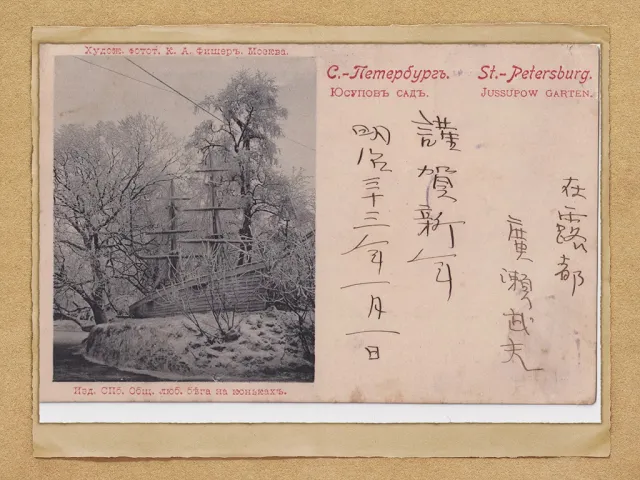 Худож. фотот. К. А. Фишеръ. Москва.
С.-Петербургъ. St.-Petersburg.
Юсуповъ садъ. Jussupow garten.
謹賀新年
明治三十三年一月一日
在露都
廣瀬武夫
Изд. СПб. Общ. люб. бѣга на конькахъ.